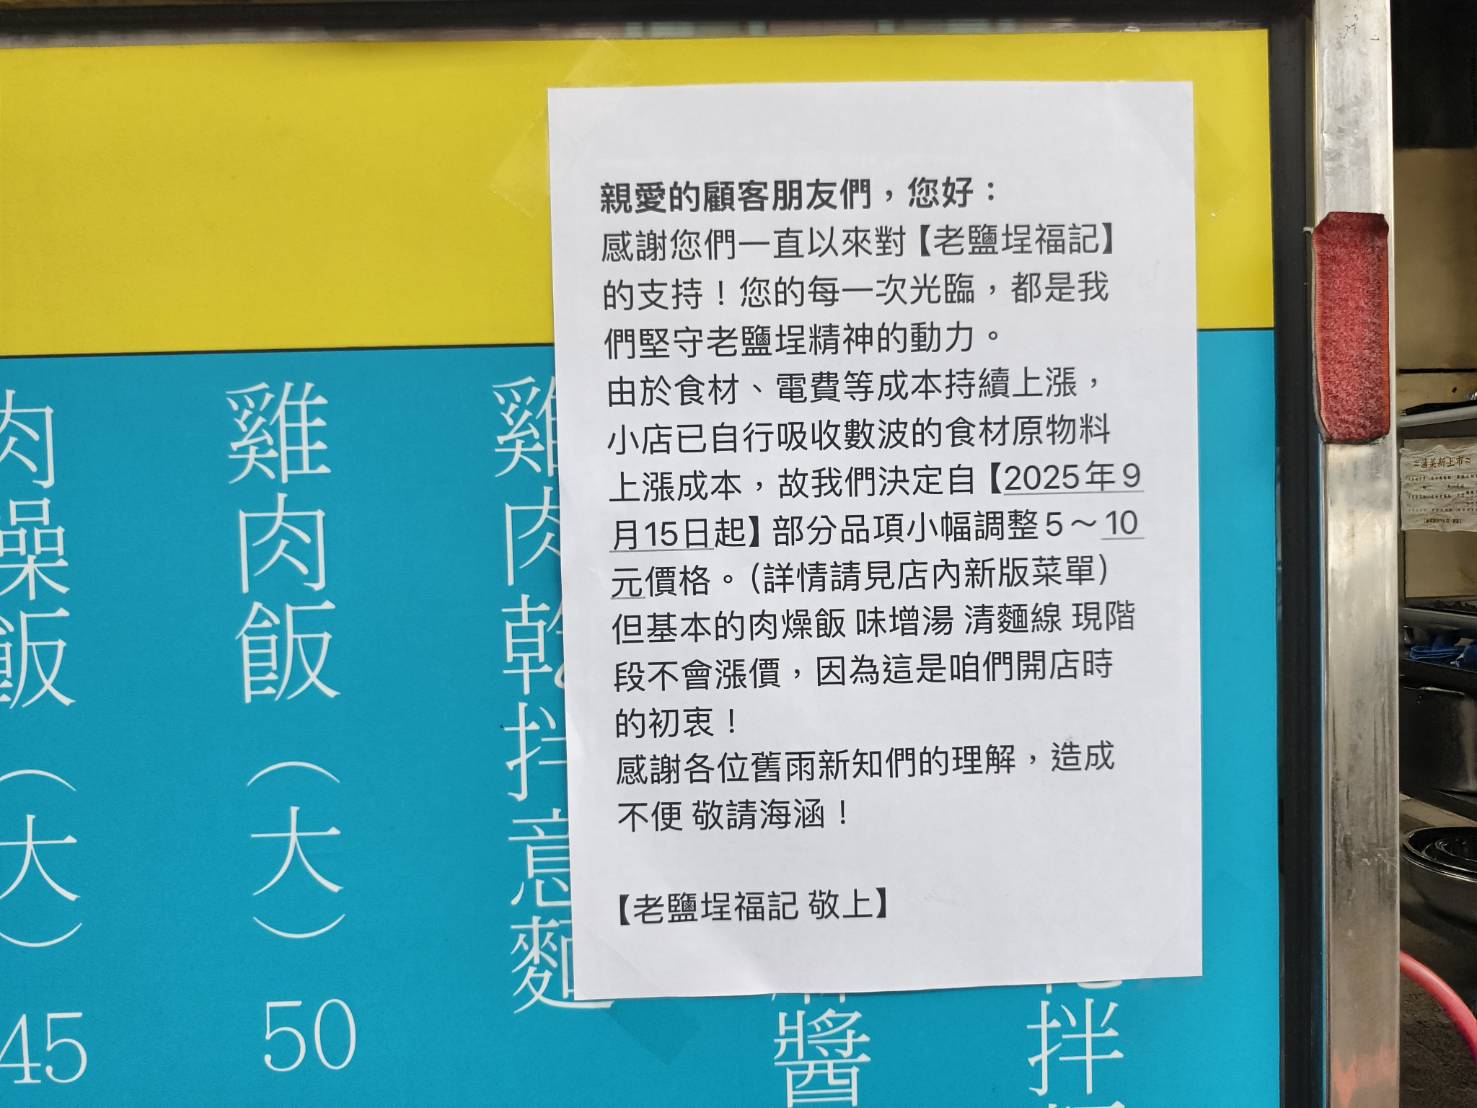 親愛的顧客朋友們，您好：
感謝您們一直以來對【老鹽埕福記】
的支持！您的每一次光臨，都是我
們堅守老鹽埕精神的動力。
由於食材、電費等成本持續上漲，
小店已自行吸收數波的食材原物料
上漲成本，故我們決定自【2025年9
月15日起】部分品項小幅調整5～10
元價格。（詳情請見店內新版菜單）
但基本的肉燥飯 味增湯 清麵線 現階
段不會漲價，因為這是咱們開店時
的初衷！
感謝各位舊雨新知們的理解，造成
不便 敬請海涵！
【老鹽埕福記 敬上】
醬
拌
雞肉乾拌意麵
雞肉飯（大）50
肉燥飯（大）45